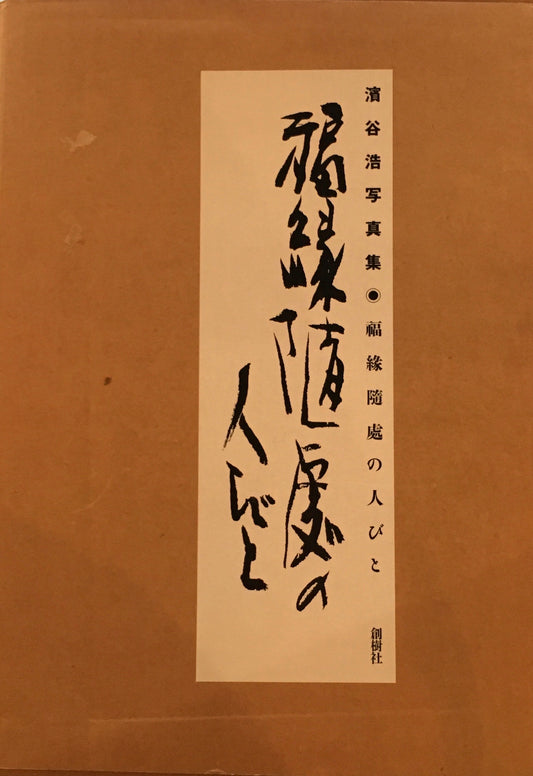 濱谷浩写真集◉福緣隨處の人びと
創樹社
福縁随處の
人びと